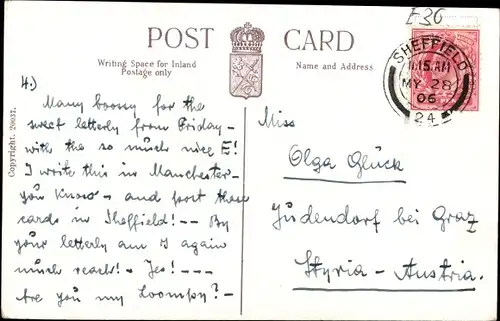 £36
POST CARD
Writing Space for Inland
Postage only
Name and Address
SHEFFIELD
11.15 AM
MY 28
06
24
Copyright. 20037.
4.)
Many boossy for the
sweet letterly from Friday -
with the so much nice E!
I write this in Manchester -
you know - and post these
cards in Sheffield! -- By
your letterly am I again
much reach! - Yes! ---
Are you my Loompy? -
Miss
Olga Glück
Judendorf bei Graz
Styria - Austria.